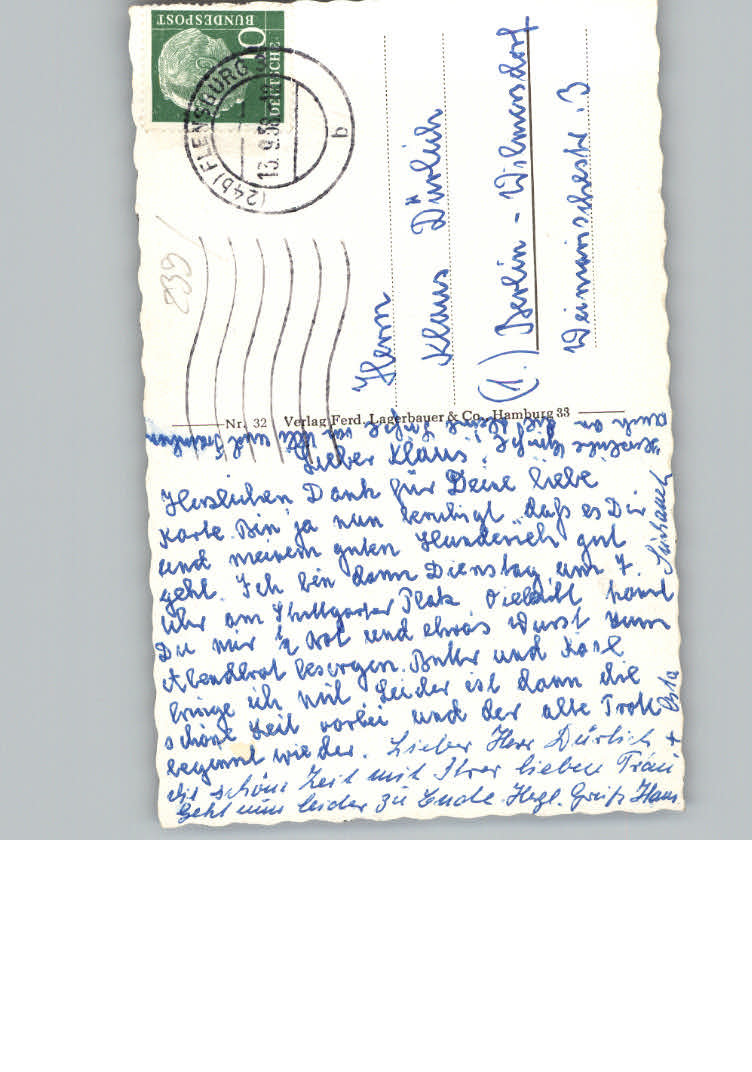 DEUTSCHE
BUNDESPOST
10
(24b) FLENSBURG 2
13.9.58
b
839
Herrn
Klaus Dürlich
(1.) Berlin - Wilmersdorf
Weimarischestr. 3
Nr. 32 Verlag Ferd. Lagerbauer & Co., Hamburg 33
Lieber Klaus!
Herzlichen Dank für Deine liebe
Karte. Bin ja nun beruhigt, daß es Dir
und meinem guten Hunderich gut
geht. Ich bin dann Dienstag um 7.
Uhr am Stuttgarter Platz. Vielleicht kannst
Du mir ½ Brot und etwas Wurst zum
Abendbrot besorgen. Butter und Käse
bringe ich mit. Leider ist dann die
schöne Zeit vorbei und der alte Trott
beginnt wieder. Lieber Herr Dürlich,
die schöne Zeit mit Ihrer lieben Frau
geht nun leider zu Ende. Herzl. Gruß Hans